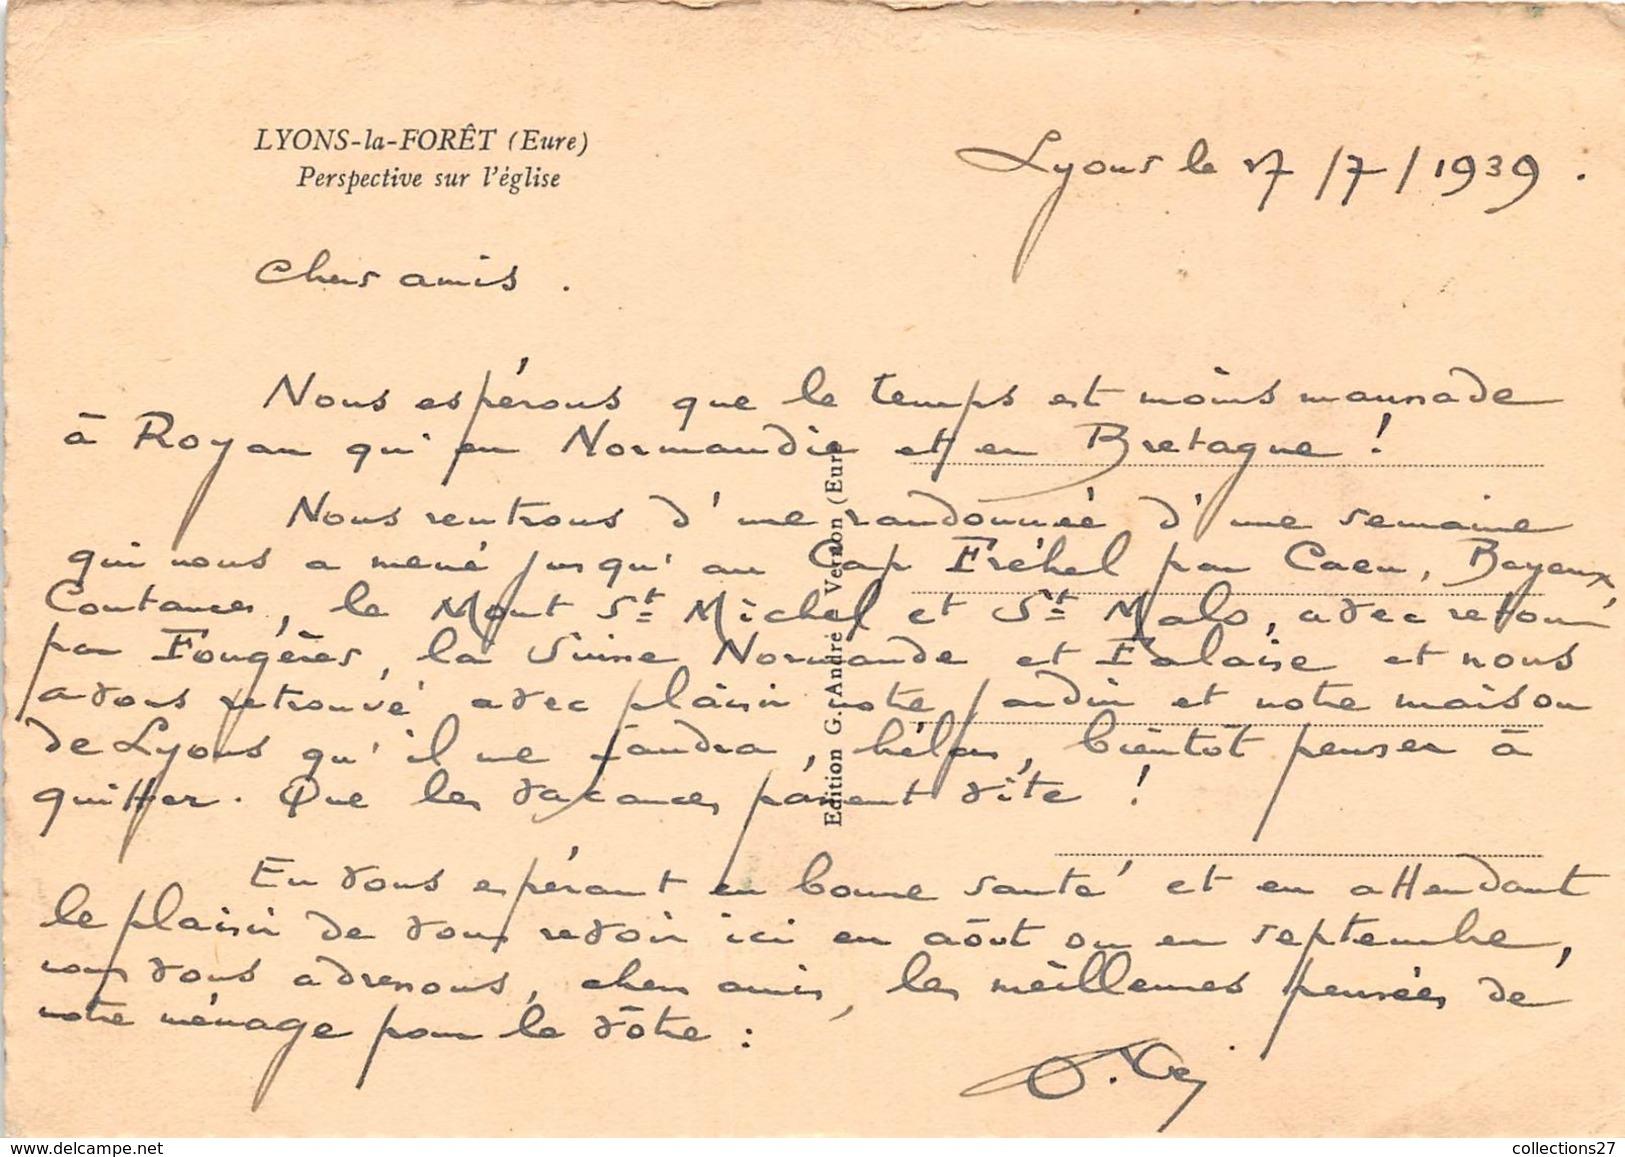 LYONS-la-FORÊT (Eure)
Perspective sur l'église
Lyons le 17/7/1939.
Chers amis.
Nous espérons que le temps est moins maussade
à Royan qu'en Normandie et en Bretagne !
Nous rentrons d'une randonnée d'une semaine
qui nous a mené jusqu'au Cap Fréhel par Caen, Bayeux,
Coutances, le Mont St Michel et St Malo, avec retour
par Fougères, la Suisse Normande et Falaise et nous
avons retrouvé avec plaisir notre jardin et notre maison
de Lyons qu'il me faudra, hélas, bientôt penser à
quitter. Que les vacances passent vite !
En vous espérant en bonne santé et en attendant
le plaisir de vous revoir ici en août ou en septembre,
nous vous adressons, chers amis, les meilleures pensées de
notre ménage pour le vôtre :
Edition G. André Vernon (Eure)
collections27